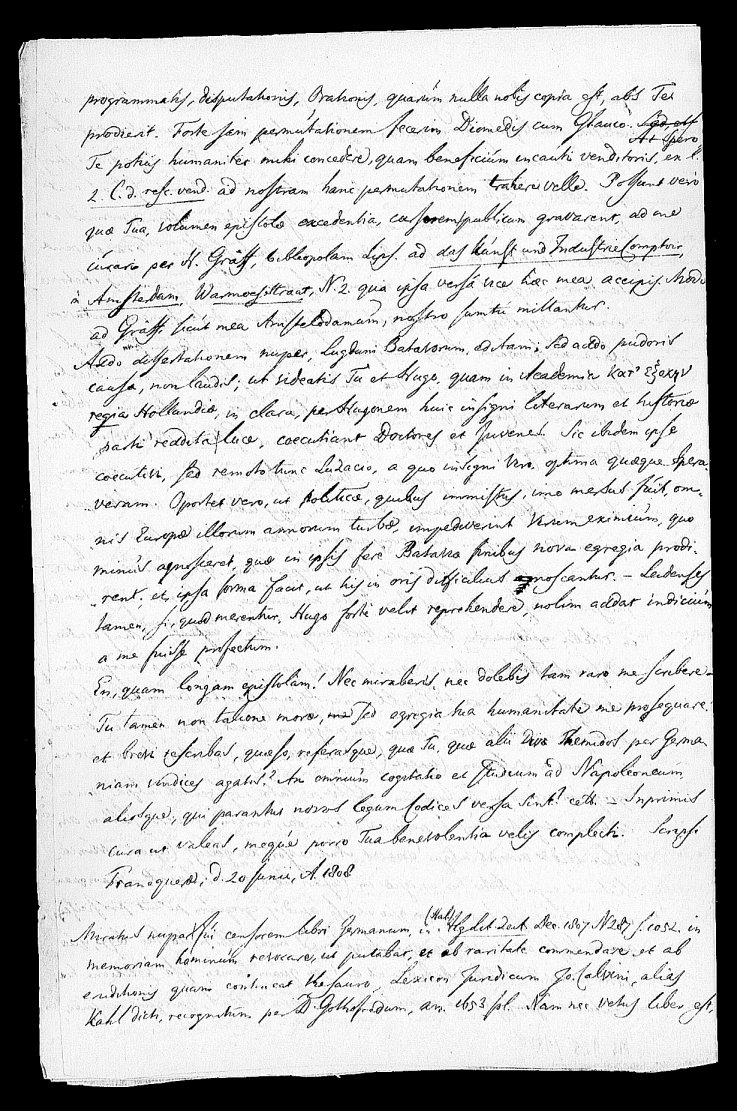 programmatis, disputationis, Orationis, quarum nulla nobis copia est, abs Te
prodierit. Forte jam permutationem fecerim Diomedis cum Glauco.
At spero
Te potius humaniter mihi concedere, quam beneficium incauti venditoris, en l.
2. C. d. resc. vend. ad nostram hanc permutationem trahere velle. Possunt vero
quae Tua, volumen epistolae excedentia, cursum publicum gravarent, ad me
curari per H. Gräff, bibliopolam Lips. ad das Kunst und Industrie Comptoir,
à Amsterdam, Warmoesstraat, N. 2. qua ipsa versa vice haec mea accipis. Modo
ad Gräff. sicut mea Amstelodamum, nostro sumtu mittantur.
Addo dissertationem nuper, Lugduni Batavorum, editam; sed addo pudoris
causa, non laudis; ut videatis Tu et Hugo, quam in Academia κατ' ἐξοχην
regia Hollandiae, in clara, per Hugonem huic insigni literarum et historiae
parti reddita luce, coecutiant Doctores et Juvenes. Sic ibidem ipse
coecutivi, sed remoto tunc Luzacio, a quo insigni viro optima quaeque spera-
veram. Oportet vero, ut Politicae, quibus immistus, imo mersus fuit, om-
nis Europae illorum annorum turbae, impediverint Virum eximium, quo
minus agnosceret, quae in ipsis fere Bataviae finibus nova egregia prodi-
rent. et ipsa forma facit, ut his in oris difficilius noscantur. – Leidenses
tamen, si, quod merentur, Hugo forte velit reprehendere, nolim addat indicium
a me fuisse profectum.
En, quam longam epistolam! Nec miraberis nec dolebis tam raro me scribere –
Tu tamen non talione morae, me sed egregia tua humanitate me prosequare
et brevi rescribas, quaeso, referasque, quae Tu, quae alii Divae Themidos per Germa
niam vindices agatis? An omnium cogitatio et studium ad Napoleoneum
aliosque, qui parantur novos legum Codices versa sint? cett. – Inprimis
cura ut valeas, meque porro Tua benevolentia velis complecti. Scripsi
Franequerae, d. 20 Junii, A. 1808
Miratus nuper fui censorem libri Germanum, in (Hall) Allg. Lit. Zeit. Dec. 1807. N 287 p. 1052. in
memoriam hominum revocare, ut putabat, et ab raritate commendare, et ab
eruditionis quam contineat thesauro, Lexicon Juridicum Jo. Calvini, alias
Kahl dicti, recognitum per D. Gothofredum, an. 1653 fol. Nam nec vetus liber est,